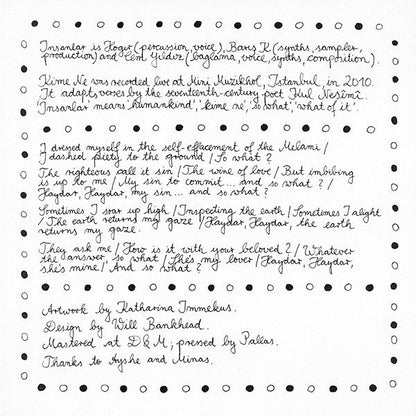 Insanlar is Hogir (percussion, voice), Barış K (synths, sampler,
production) and Cem Yıldız (bağlama, voice, synths, composition).
Kime Ne was recorded live at Mini Müzikhol, Istanbul, in 2010.
It adapts verses by the seventeenth-century poet Kul Nesîmî.
'Insanlar' means 'humankind', 'kime ne', 'so what', 'what of it'.
I dressed myself in the self-effacement of the Melami /
I dashed piety to the ground / So what?
The righteous call it sin / The wine of love / But imbibing
is up to me / My sin to commit... and so what? /
Haydar, Haydar, my sin... and so what?
Sometimes I soar up high / Inspecting the earth / Sometimes I alight
/ The earth returns my gaze / Haydar, Haydar, the earth
returns my gaze.
They ask me / How is it with your beloved? / Whatever
the answer, so what / She's my lover / Haydar, Haydar,
she's mine / And so what?
Artwork by Katharina Immekus.
Design by Will Bankhead.
Mastered at D&M; pressed by Pallas.
Thanks to Ayshe and Minas.